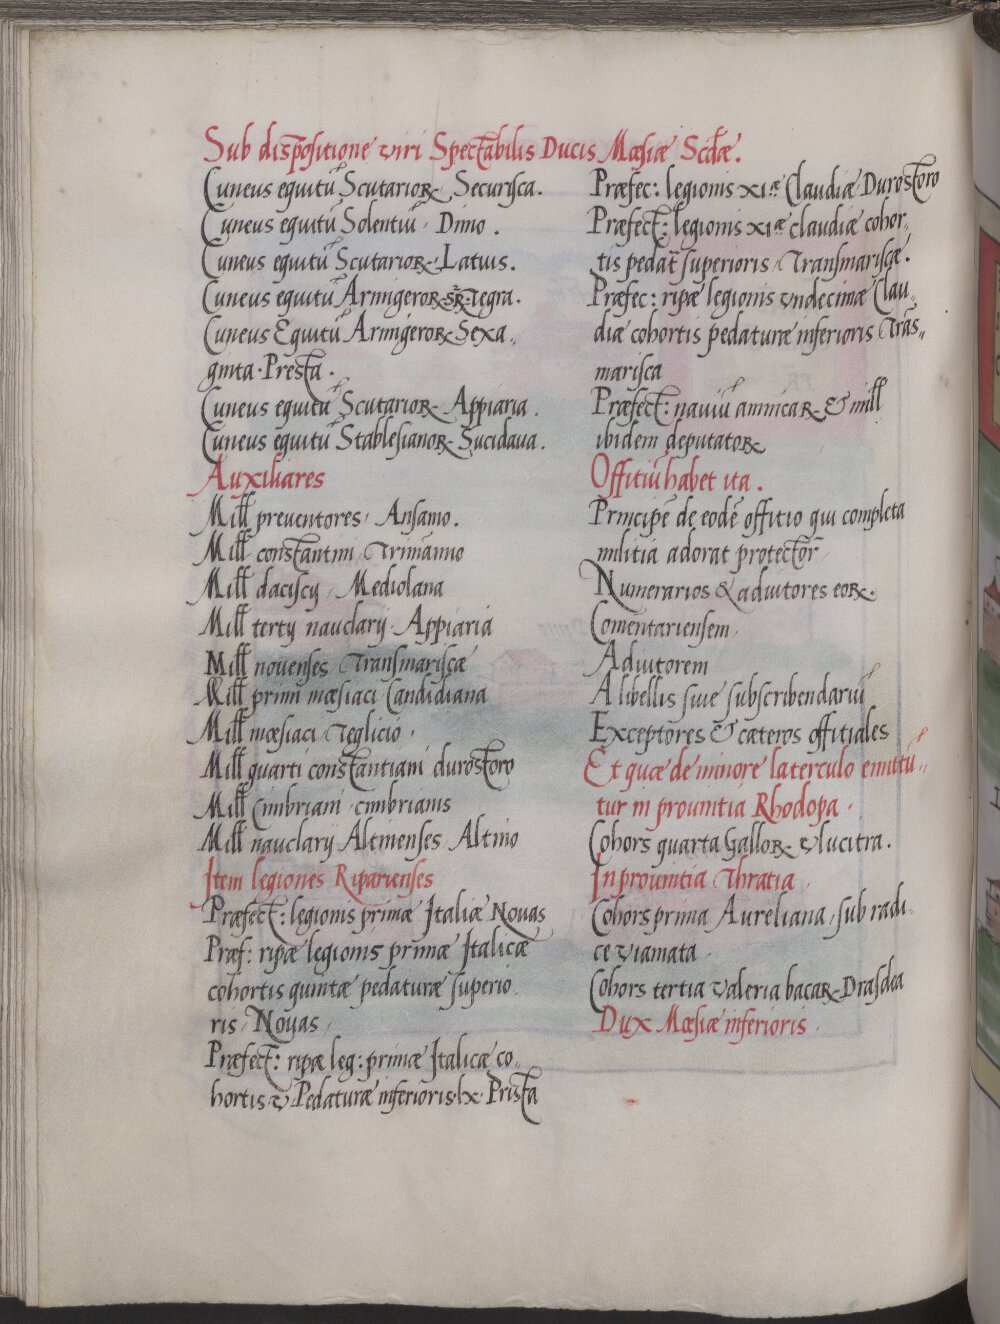 Sub dispositione viri Spectabilis Ducis Mœsiæ Scdæ.
Cuneus equitū Scutarioꝝ Securisca.
Cuneus equitū Solentiū · Dimo.
Cuneus equitū Scutarioꝝ · Latuis.
Cuneus equitū Armigeroꝝ Tegra.
Cuneus Equitū Armigeroꝝ Sexa„
ginta · Presta.
Cuneus equitū Scutarioꝝ Appiaria.
Cuneus equitū Stablesianoꝝ Sucidava.
Auxiliares
Mill preventores · Ansamo.
Mill constantini Trimānio
Mill daciscij Mediolana
Mill tertij nauclarij · Appiaria
Mill novenses Transmariscæ
Mill primi mœsiaci Candidiana
Mill mœsiaci Teglicio ·
Mill quarti constantiani durostoro
Mill Cimbriani cimbrianis
Mill nauclarij Altinenses Altino
Item legiones Riparienses
Præfect: legionis primæ Italiæ Novas
Præf: ripæ legionis primæ Italicæ
cohortis quintæ pedaturæ superio
ris · Novas ·
Præfect: ripæ leg: primæ Italicæ co
hortis · v · Pedaturæ inferioris · lx · Prista
Præfec: legionis xiæ Claudiæ Durostoro
Præfect: legionis xiæ claudiæ cohor
tis pedat superioris Transmariscæ.
Præfec: ripæ legionis undecimæ Clau„
diæ cohortis pedaturæ inferioris Trās„
marisca
Præfect: naviū amnicaꝝ & mill
ibidem deputatoꝝ
Offitiū habet ita.
Principē de eodē offitio qui completa
militia adorat protector
Numerarios & adiutores eoꝝ.
Comentariensem
Adiutorem
A libellis sive subscribendariū
Exceptores & cæteros offitiales
Et quæ de minore laterculo emittū„
tur in provintia Rhodopa ·
Cohors quarta Galloꝝ Ulucitra.
In provintia Thratia ·
Cohors prima Aureliana · sub radi
ce Viamata ·
Cohors tertia Valeria bacaꝝ Drasdea
Dux Mœsiæ inferioris ·